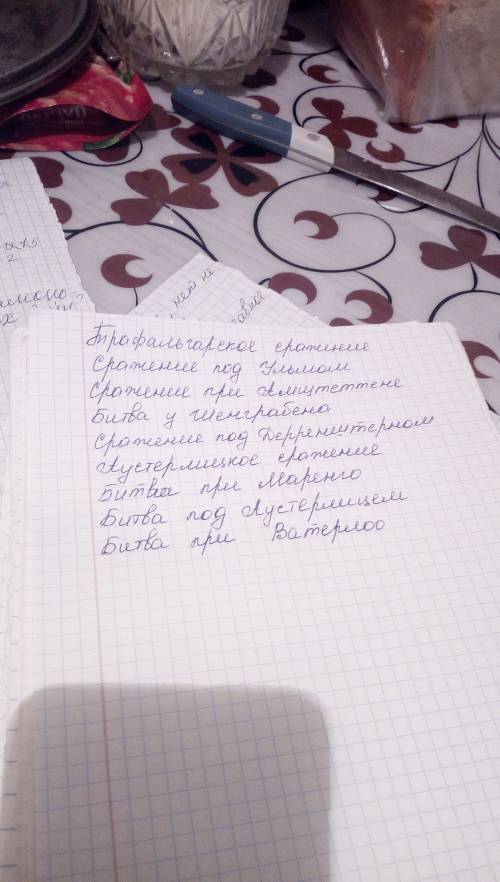 Трафальгарское сражение
Сражение под Ульмом
Сражение при Амштеттене
Битва у Шенграбена
Сражение под Дерренштерном
Аустерлицкое сражение
Битва при Маренго
Битва под Аустерлицем
Битва при Ватерлоо
нет не